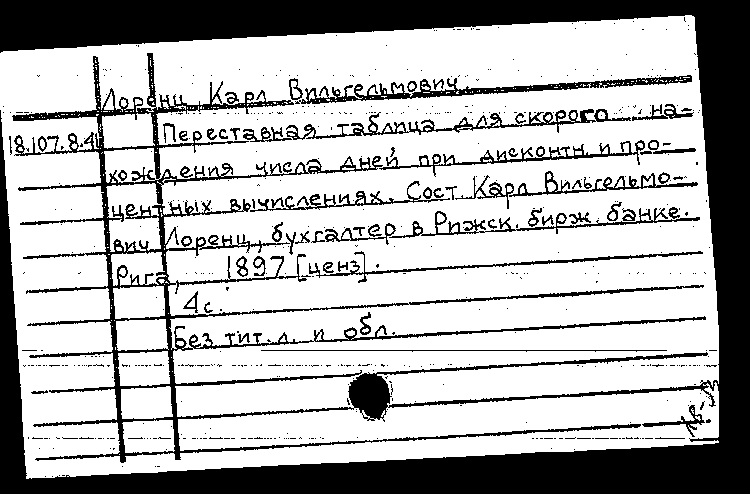 Лоренц, Карл Вильгельмович.
18.107.8.4 Переставная таблица для скорого на-
хождения числа дней при дисконтн. и про-
центных вычислениях. Сост. Карл Вильгельмо-
вич Лоренц, бухгалтер в Рижск. бирж. банке.
Рига, 1897 [ценз].
4 с.
Без тит. л. и обл.